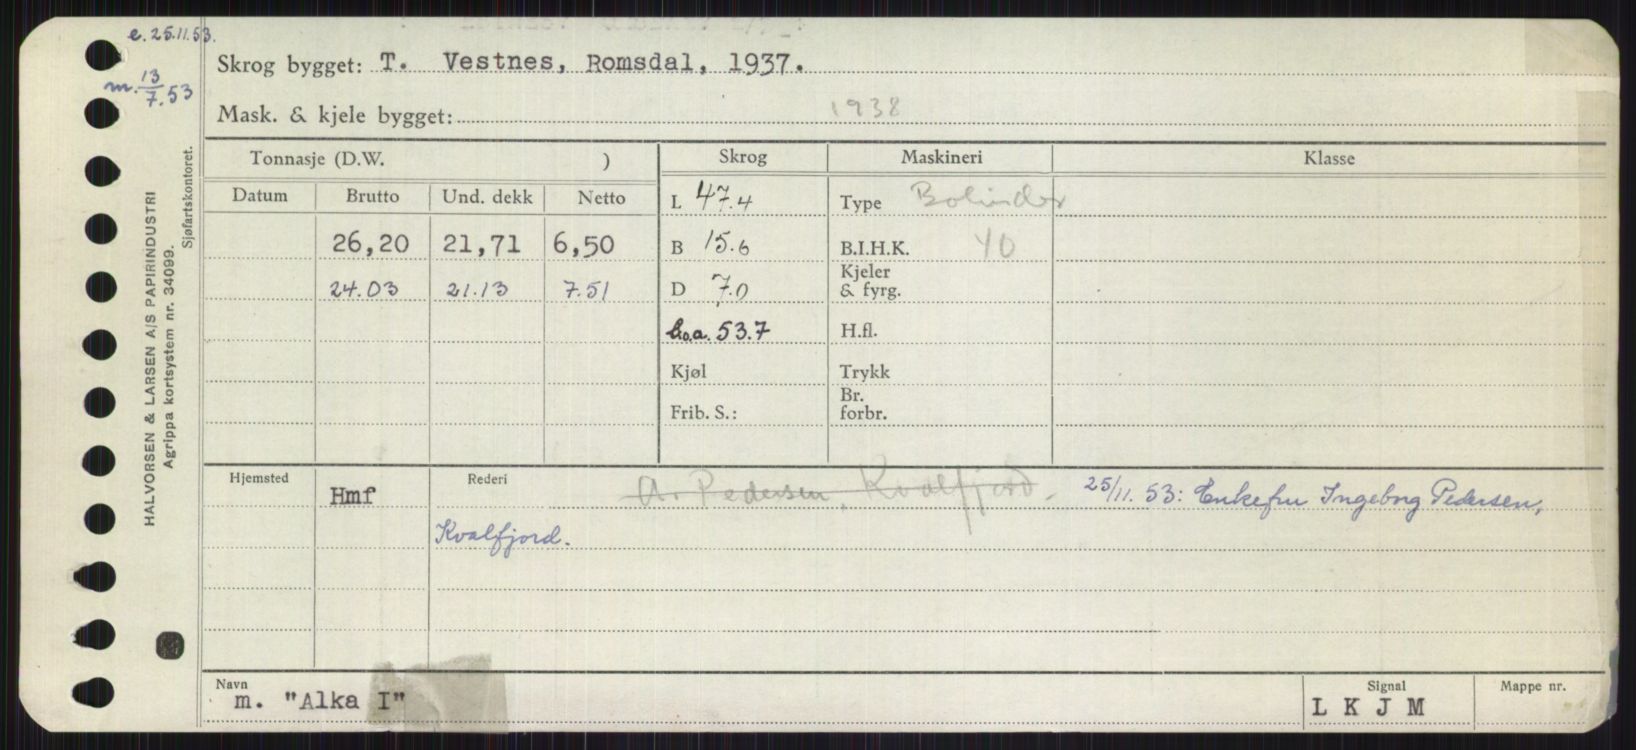 e. 25.11.53.
m. 13/7.53
Skrog bygget: T. Vestnes, Romsdal, 1937.
Mask. & kjele bygget: 1938
Tonnasje (D.W. )
Skrog
Maskineri
Klasse
Datum Brutto Und. dekk Netto
L 47.4
Type Bolinder
26,20 21,71 6,50
B 15.6
B.I.H.K. 40
24.03 21.13 7.51
D 7.0
Kjeler
& fyrg.
L.o.a. 53.7
H.fl.
Kjøl
Trykk
Frib. S.:
Br.
forbr.
Hjemsted
Hmf
Rederi
A. Pedersen, Kvalfjord. 25/11. 53: Enkefru Ingeborg Pedersen,
Kvalfjord.
Navn
m. "Alka I"
Signal
L K J M
Mappe nr.
HALVORSEN & LARSEN A/S PAPIRINDUSTRI
Agrippa kortsystem nr. 34099.
Sjøfartskontoret.